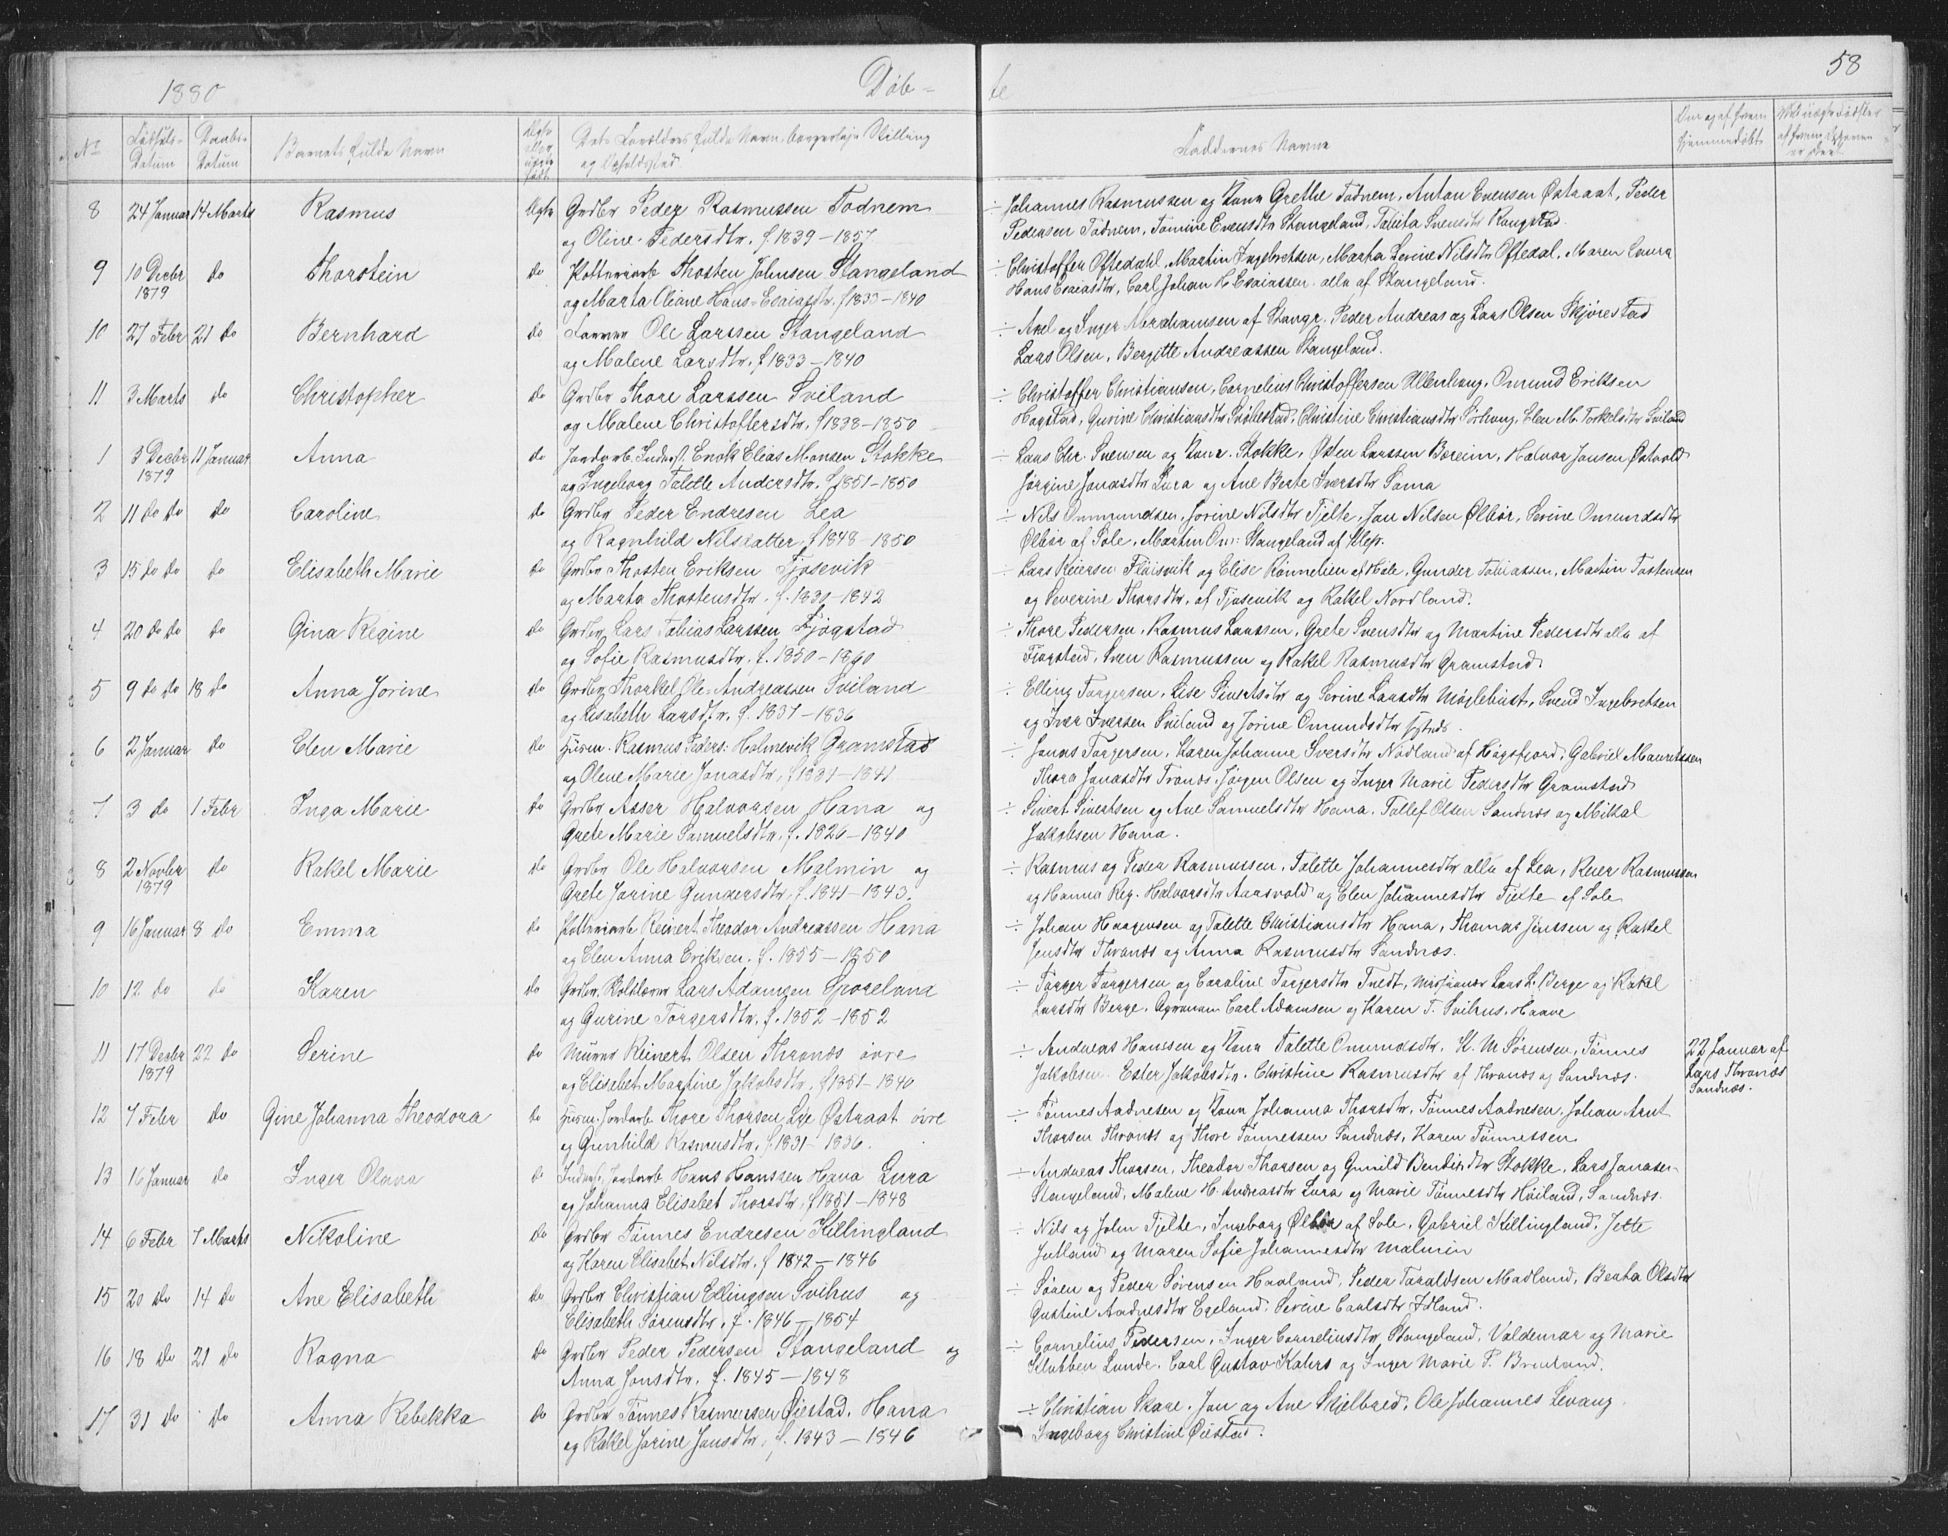 58
1880
Døb-
te
No
Fødsels-
Datum
Daabs-
Datum
Barnets fulde Navn
Faddernes Navne
8 24 Januar 14 Marts Rasmus Ægte Grdbr Peder Rasmussen Todnem
og Oline Pedersdtr. f. 1839 - 1857
÷ Johannes Rasmussen og Kone Grethe Todnem, Anton Evensen Østraat, Peder
Pedersen Todnem, Tomine Evensdtr Stangeland, Talita Svensdtr
9 10 Decbr do Thorstein do Thosten Johnsen Stangeland
1879
og Marta Oliane Hans-Esaiasdtr. f. 1839 - 1840
÷ Christoffer Oftedahl, Martin Ingebretsen, Marta Serine Nilsdtr Oftedal, Maren Laura
Hans Esaiasdtr, Carl Johan H. Esaiassen alle af Stangeland.
10 27 Febr 21 do Bernhard do Ole Larssen Stangeland
og Malene Larsdtr. f. 1833 - 1840
÷ Axel og Inger Abrahamsen af Stangr. Peder Andreas og Lars Olsen Skjørestad
Lars Olsen, Bergitte Andreassen Stangeland.
11 3 Marts do Christopher do Grdbr Thore Larssen Sviland
og Malene Christoffersdtr. f. 1838 - 1850
÷ Christoffer Christiansen, Cornelius Christoffersen Ullenhaug, Omund Eriksen
Hogstad, Gurine Christiansdtr Christine Christiansdtr Elen M. Torkelsdtr Sviland
1 3 Decbr 11 Januar Anna do Jordarb. Inderst. Enok Elias Monsen Stokke
1879
og Ingeborg Talette Andersdtr. f. 1851 - 1850
÷ Lars Chr. Svensen og Kone Stokke, Østen Larssen Boreim, Halvor Jansen Østvold
Jørgine Jonasdtr Lura og Ane Berte Iversdtr Soma
2 11 do do do Caroline do Grdbr Peder Endresen Lea
og Ragnhild Nilsdatter, f. 1848 - 1850
÷ Nils Ommundsen, Jorine Nilsdtr Tjelte, Jon Nilsen Ølbør, Serine Omundsdtr
Ølbør af Sole, Martin Om: Stangeland af Klep.
3 15 do do do Elisabeth Marie do Grdbr Thosten Eriksen Fjosevik
og Marta Thostensdtr. f. 1839 - 1842
÷ Lars Reiersen Fløisvik og Elise Rønnelien af Hole, Gunder Tobiassen, Martin Tostensen
og Severine Thorsdtr. af Fjosevik og Rakel Nordland.
4 20 do do do Gina Regine do Grdbr Lars Tobias Larssen Fjogstad
og Sofie Rasmusdtr. f. 1850 - 1860
÷ Thore Pedersen, Rasmus Larssen, Grete Svensdtr og Martine Pedersdtr alle af
Fjogstad, Sven Rasmussen og Rakel Rasmusdtr Gramstad
5 9 do do 18 do Anna Jorine do Grdbr Thorkel Ole-Andreassen Sviland
og Lisabeth Larsdtr. f. 1837 - 1836
÷ Elling Torgersen, Lise Sivertsdtr og Serine Larsdtr Møglebust, Svend Ingebretsen
og Iver Iversen Sviland og Jorine Omundsdtr
6 2 Januar do Elen Marie do Husm. Rasmus Peders: Holmevik Gramstad
og Olene Marie Jonasdtr, f. 1837 - 1841
÷ Jonas Torgersen, Karen Johanne Iversdtr Nodland af Høgsfjord, Gabriel Mauritssen
Thora Jonasdtr Tronæs, Jørgen Olsen og Inger Marie Pedersdtr Gramstad
7 3 do 1 Febr Inga Marie do Grdbr Asser Halvorsen Hana og
Grete Marie Samuelsdtr, f. 1826 - 1840
÷ Sivert Sivertsen og Ane Samuelsdtr Hana, Tollef Olsen Sandnæs og Mikal
Jakobsen Hana.
8 2 Novbr do Rakel Marie do Grdbr Ole Halvorsen Malmin og
1879
Grete Jorine Gundersdtr, f. 1841 - 1843.
÷ Rasmus og Peder Rasmussen, Talette Johannesdtr alle af Lea, Reier Rasmussen
og Hanna Reg. Halvorsdtr Aarsvold og Elen Johannesdtr Tjelte af Sole
9 16 Januar 8 do Emma do Reinert Theodor Andreassen Hana
og Elen Anna Eriksen. f. 1855 - 1850
÷ Johan Haagensen og Talette Christiansdtr Hana, Thomas Jenssen og Rakel
Jensdtr Thronæs og Anna Rasmusdtr Sandnæs.
10 12 do do Karen do Grdbr. Lars Adamsen Sporeland
og Gurine Torgersdtr, f. 1852 - 1852
÷ Torger Torgersen og Caroline Torgersdtr Tvedt, Lars L. Berge og Rakel
Larsdtr Berge, Agronom Carl Adamsen og Karen T. Svihus, Haave
11 17 Decbr 22 do Serine do Murer Reinert Olsen Thronæs øvre
1879
og Elisabet Martine Jakobsdtr, f. 1851 - 1840
÷ Andreas Hanssen og Kone Talette Omundsdtr. K. M. Sørensen, Tønnes
Jakobsen Ester Jakobsdtr. Christine Rasmusdtr af Thronæs og Sandnæs.
22 Januar af
Lars Thronæs
Sandnæs.
12 7 Febr do Gine Johanna Theodora do Husm. Jordarb Thore Thorsen Lye Østraat øvre
og Gunhild Rasmusdtr, f. 1831 - 1836.
÷ Tønnes Aadnesen og Kone Johanna Thorsdtr, Tønnes Aadnesen, Johan Arnt
Thorsen Thronæs og Thore Tønnessen Sandnæs, Karen Tønnessen
13 16 Januar do Inger Olava do Inderst. Jordarb Hans Hanssen Hana Lura
og Johanna Elisabet Thorsdtr, f. 1851 - 1848
÷ Andreas Thorsen, Theodor Thorsen og Gunild Bendixdtr Stokke, Lars Jonasen
Stangeland, Malene H. Andreasdtr Lura og Marie Tønnesdtr Høiland, Sandnæs.
14 6 Febr 7 Marts Nikoline do Grdbr Tønnes Endresen Killingland
og Karen Elisabet Nilsdtr. f. 1842 - 1846
÷ Nils og John Tjelte, Ingeborg Ølbør af Sole, Gabriel Killingland, Jette
Jutland og Maren Sofie Johannesdtr Malmin
15 20 do 14 do Ane Elisabeth do Grdbr Christian Ellingsen Svihus og
Elisabeth Sørensdtr, f. 1846 - 1854
÷ Søren og Peder Sørensen Haaland, Peder Taraldsen Madland, Berta Olsdtr
Gustine Aadnesdtr Egeland, Serine Carlsdtr Idland.
16 18 do 21 do Ragna do Grdbr Peder Pedersen Stangeland og
Anna Jonsdtr, f. 1845 - 1848
÷ Cornelius Pedersen, Inger Corneliusdtr Stangeland, Valdemar og Marie
Klubben Lunde. Carl Gustav Kahrs og Inger Marie P.
17 31 do do Anna Rebekka do Grdbr Tønnes Rasmussen Øiestad, Hana
og Rakel Jorine Jonsdtr, f. 1843 - 1846
÷ Christian Skare, Jon og Ane Skjelbred, Ole Johannes Levang
Ingeborg Christine Øiestad.